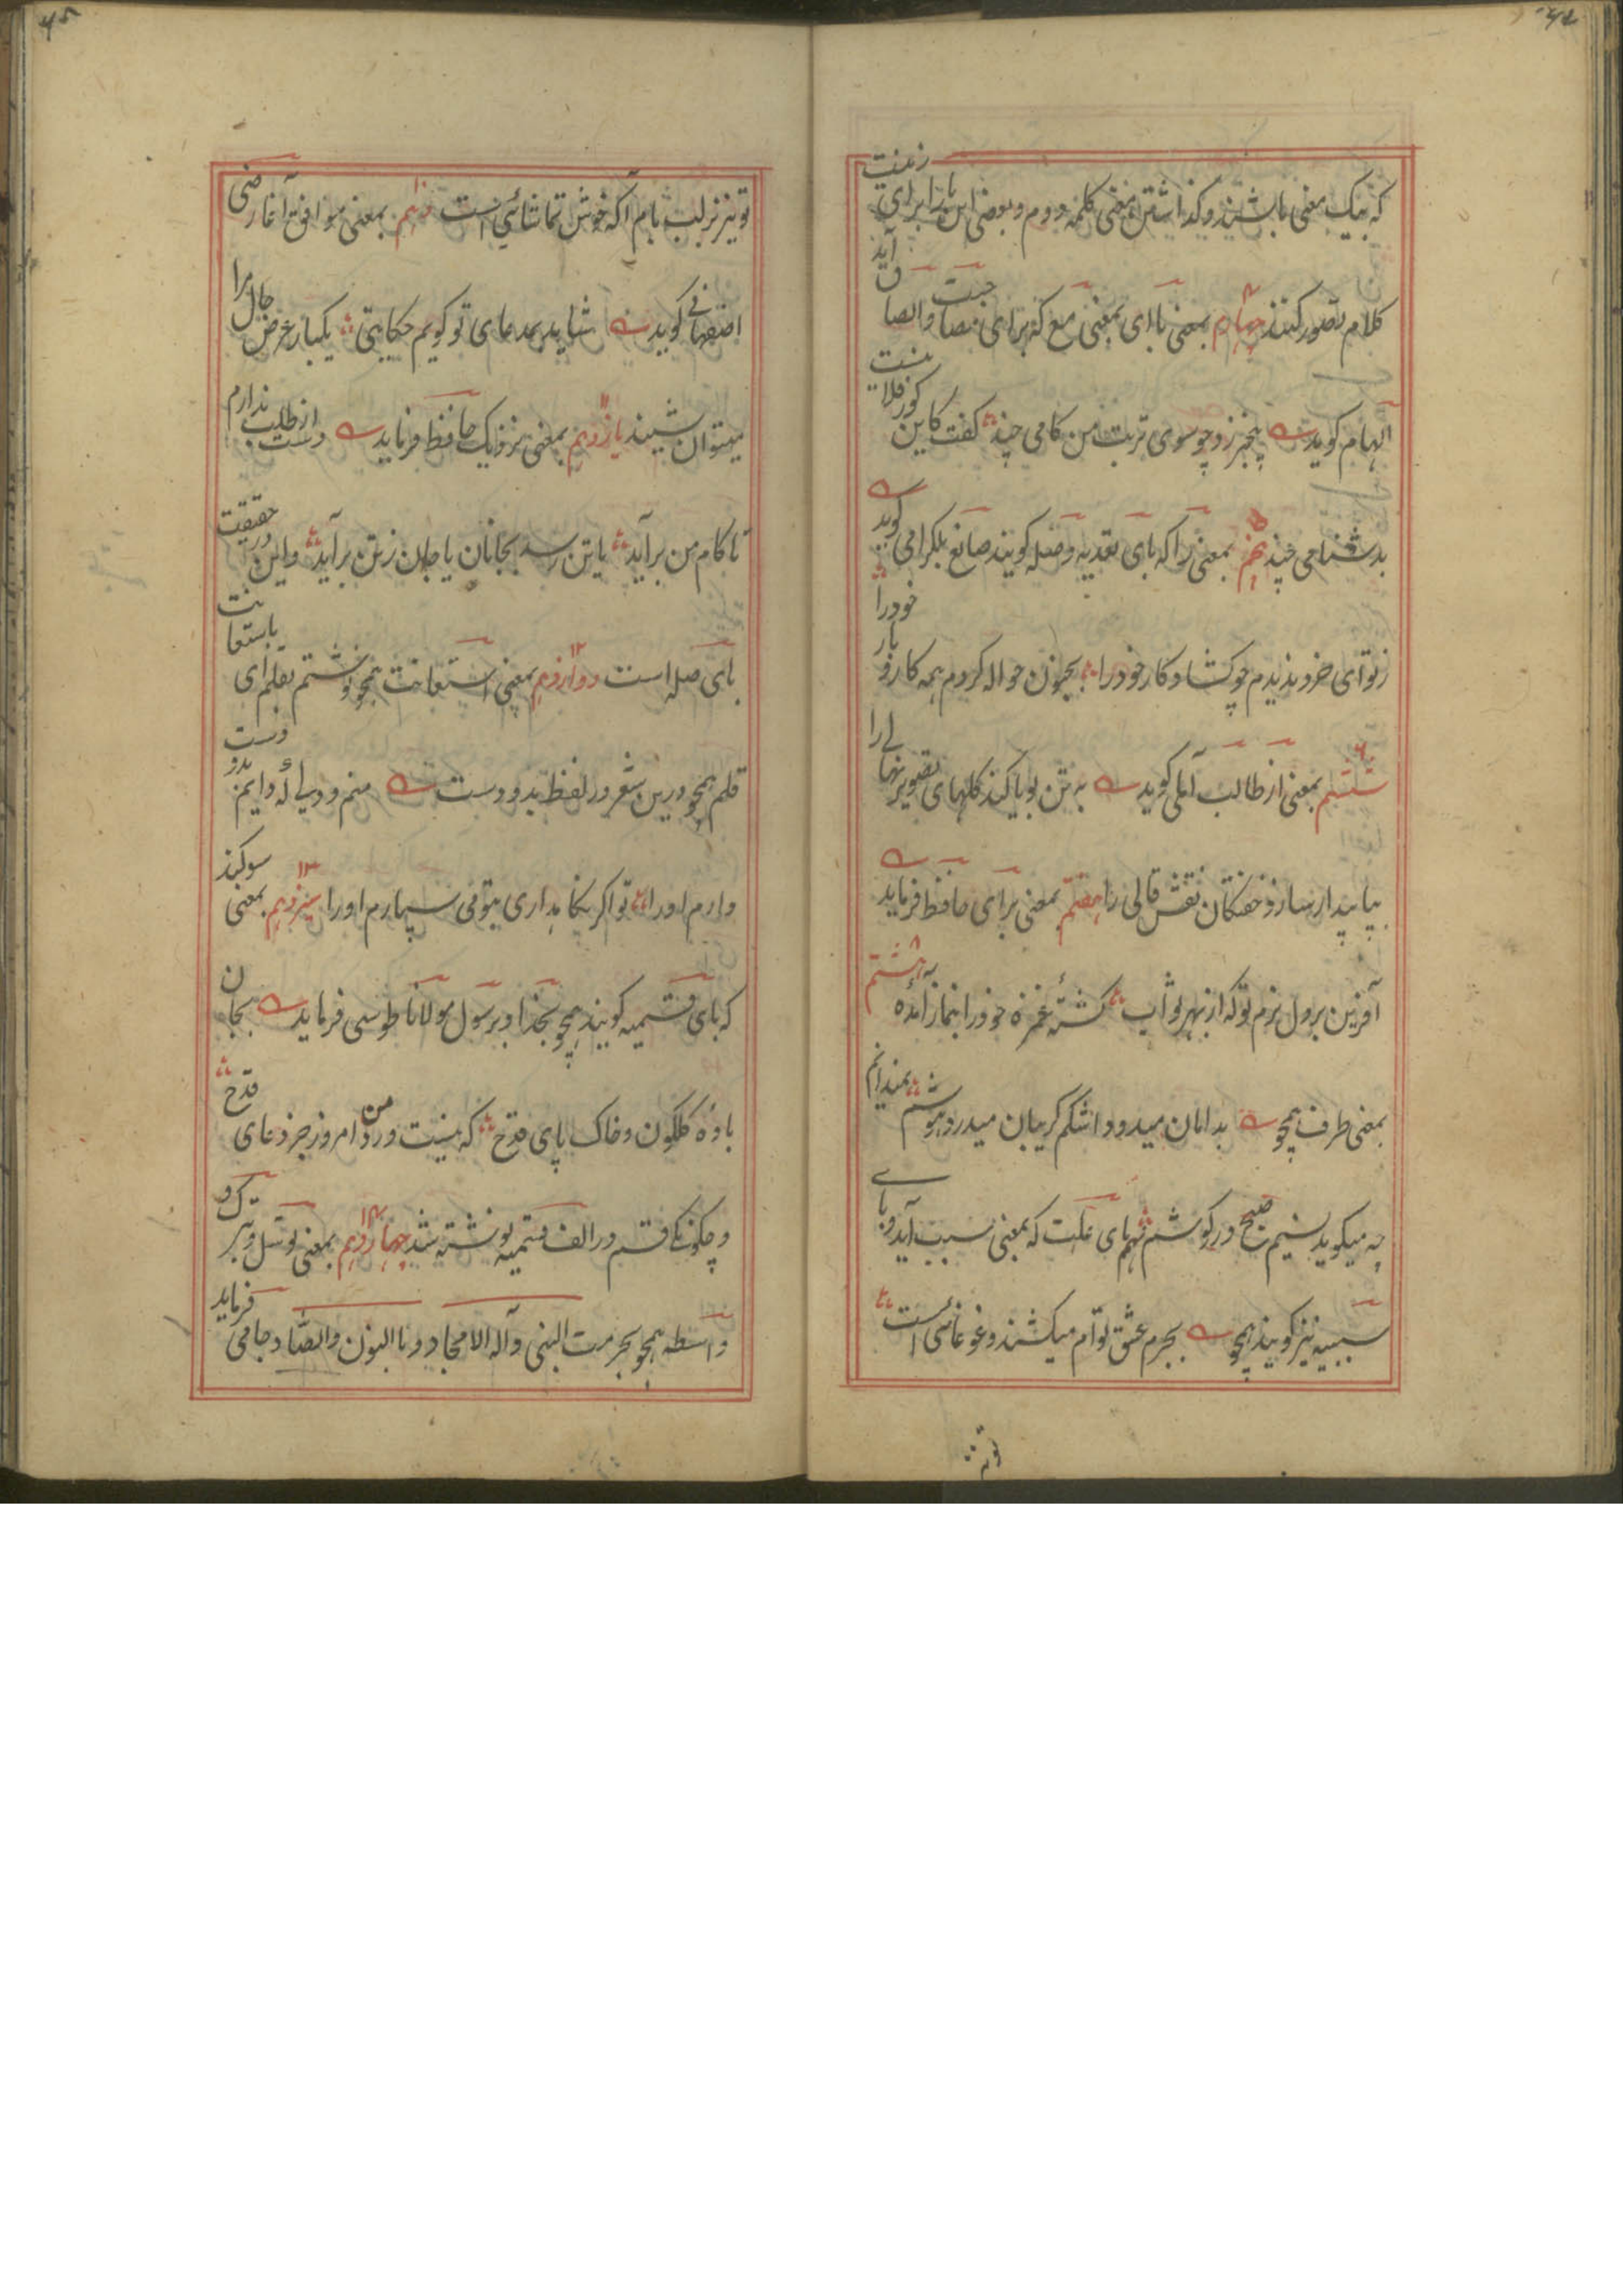 که بیک معنی باشند و گذاشتن معنی کلمه دوم و بعضی این بارا برای زینت
کلام تصور کنند چهارم بمعنی با ای بمعنی مع که برای مصاحبت والصاق آید
الهام گوید پنجبر زد چو سوی تربت من گامی چند گفت کاین گور فلانیست
بدشنامی چند پنجم بمعنی را که بای تعدیه و صله گویند صانع بلگرامی گوید
ز تو ای خرد ندیدم چو گشاد کار خود را بجنون حواله کردم همه کار و بار خود را
ششم بمعنی از طالب آملی گوید به تن بویا کند گلهای تصویر نهالی را
بپا بیدار سازد خفتگان نقش قالی را هفتم بمعنی برای حافظ فرماید
آفرین بر دل نرم تو که از بهر ثواب کشتهٔ غمزه خود را بنماز آمدهٔ هشتم
بمعنی طرف همچو بدامان میدود اشکم گریبان میدرد هوشم نمیدانم
چه میگوید نسیم صبح در گوشم نهم بای علت که بمعنی سبب آید و بای
سببیه نیز گویند همچو بجرم عشق توام میکشند و غوغائی است
تو نیز
تو نیز بر لب بام آ که خوش تماشائی است دهم بمعنی موافق آغا رضی
اصفهانی گوید شاید بمدعای تو گویم حکایتی یکبار عرض حال مرا
میتوان شنید یازدهم بمعنی نزدیک حافظ فرماید دست از طلب ندارم
تا کام من برآید یا تن رسد بجانان یا جان ز تن برآید و این در حقیقت
بای صله است دوازدهم بمعنی استعانت همچو نوشتم بقلم ای باستعانت
قلم همچو درین شعر در لفظ بدو دست منم و دلی که دایم بدو دست
دارم او را تو اگر نگاهداری بتو می سپارم او را سیزدهم بمعنی سوگند
که بای قسمیه گویند همچو بخدا و برسول مولانا طوسی فرماید بجان
باده گلگون و خاک پای قدح که نیست ورد من امروز جز دعای قدح
و چگونگی قسم در الف قسمیه نوشته شد چهاردهم بمعنی توسل و تبرک و
واسطه همچو بحرمت النبی و آله الامجاد و بالنون والصاد جامی فرماید